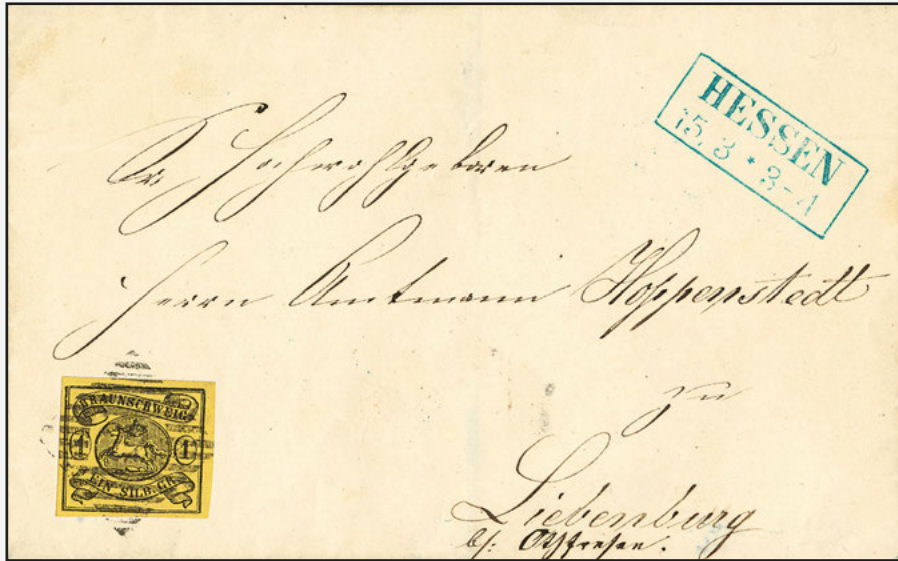 HESSEN
15. 3 * 3-4
Sr. Hochwohlgeboren
Herrn Amtmann Hoppenstedt
zu
Liebenburg
b/: Othfresen.
BRAUNSCHWEIG
1 1
EIN SILB. GR.